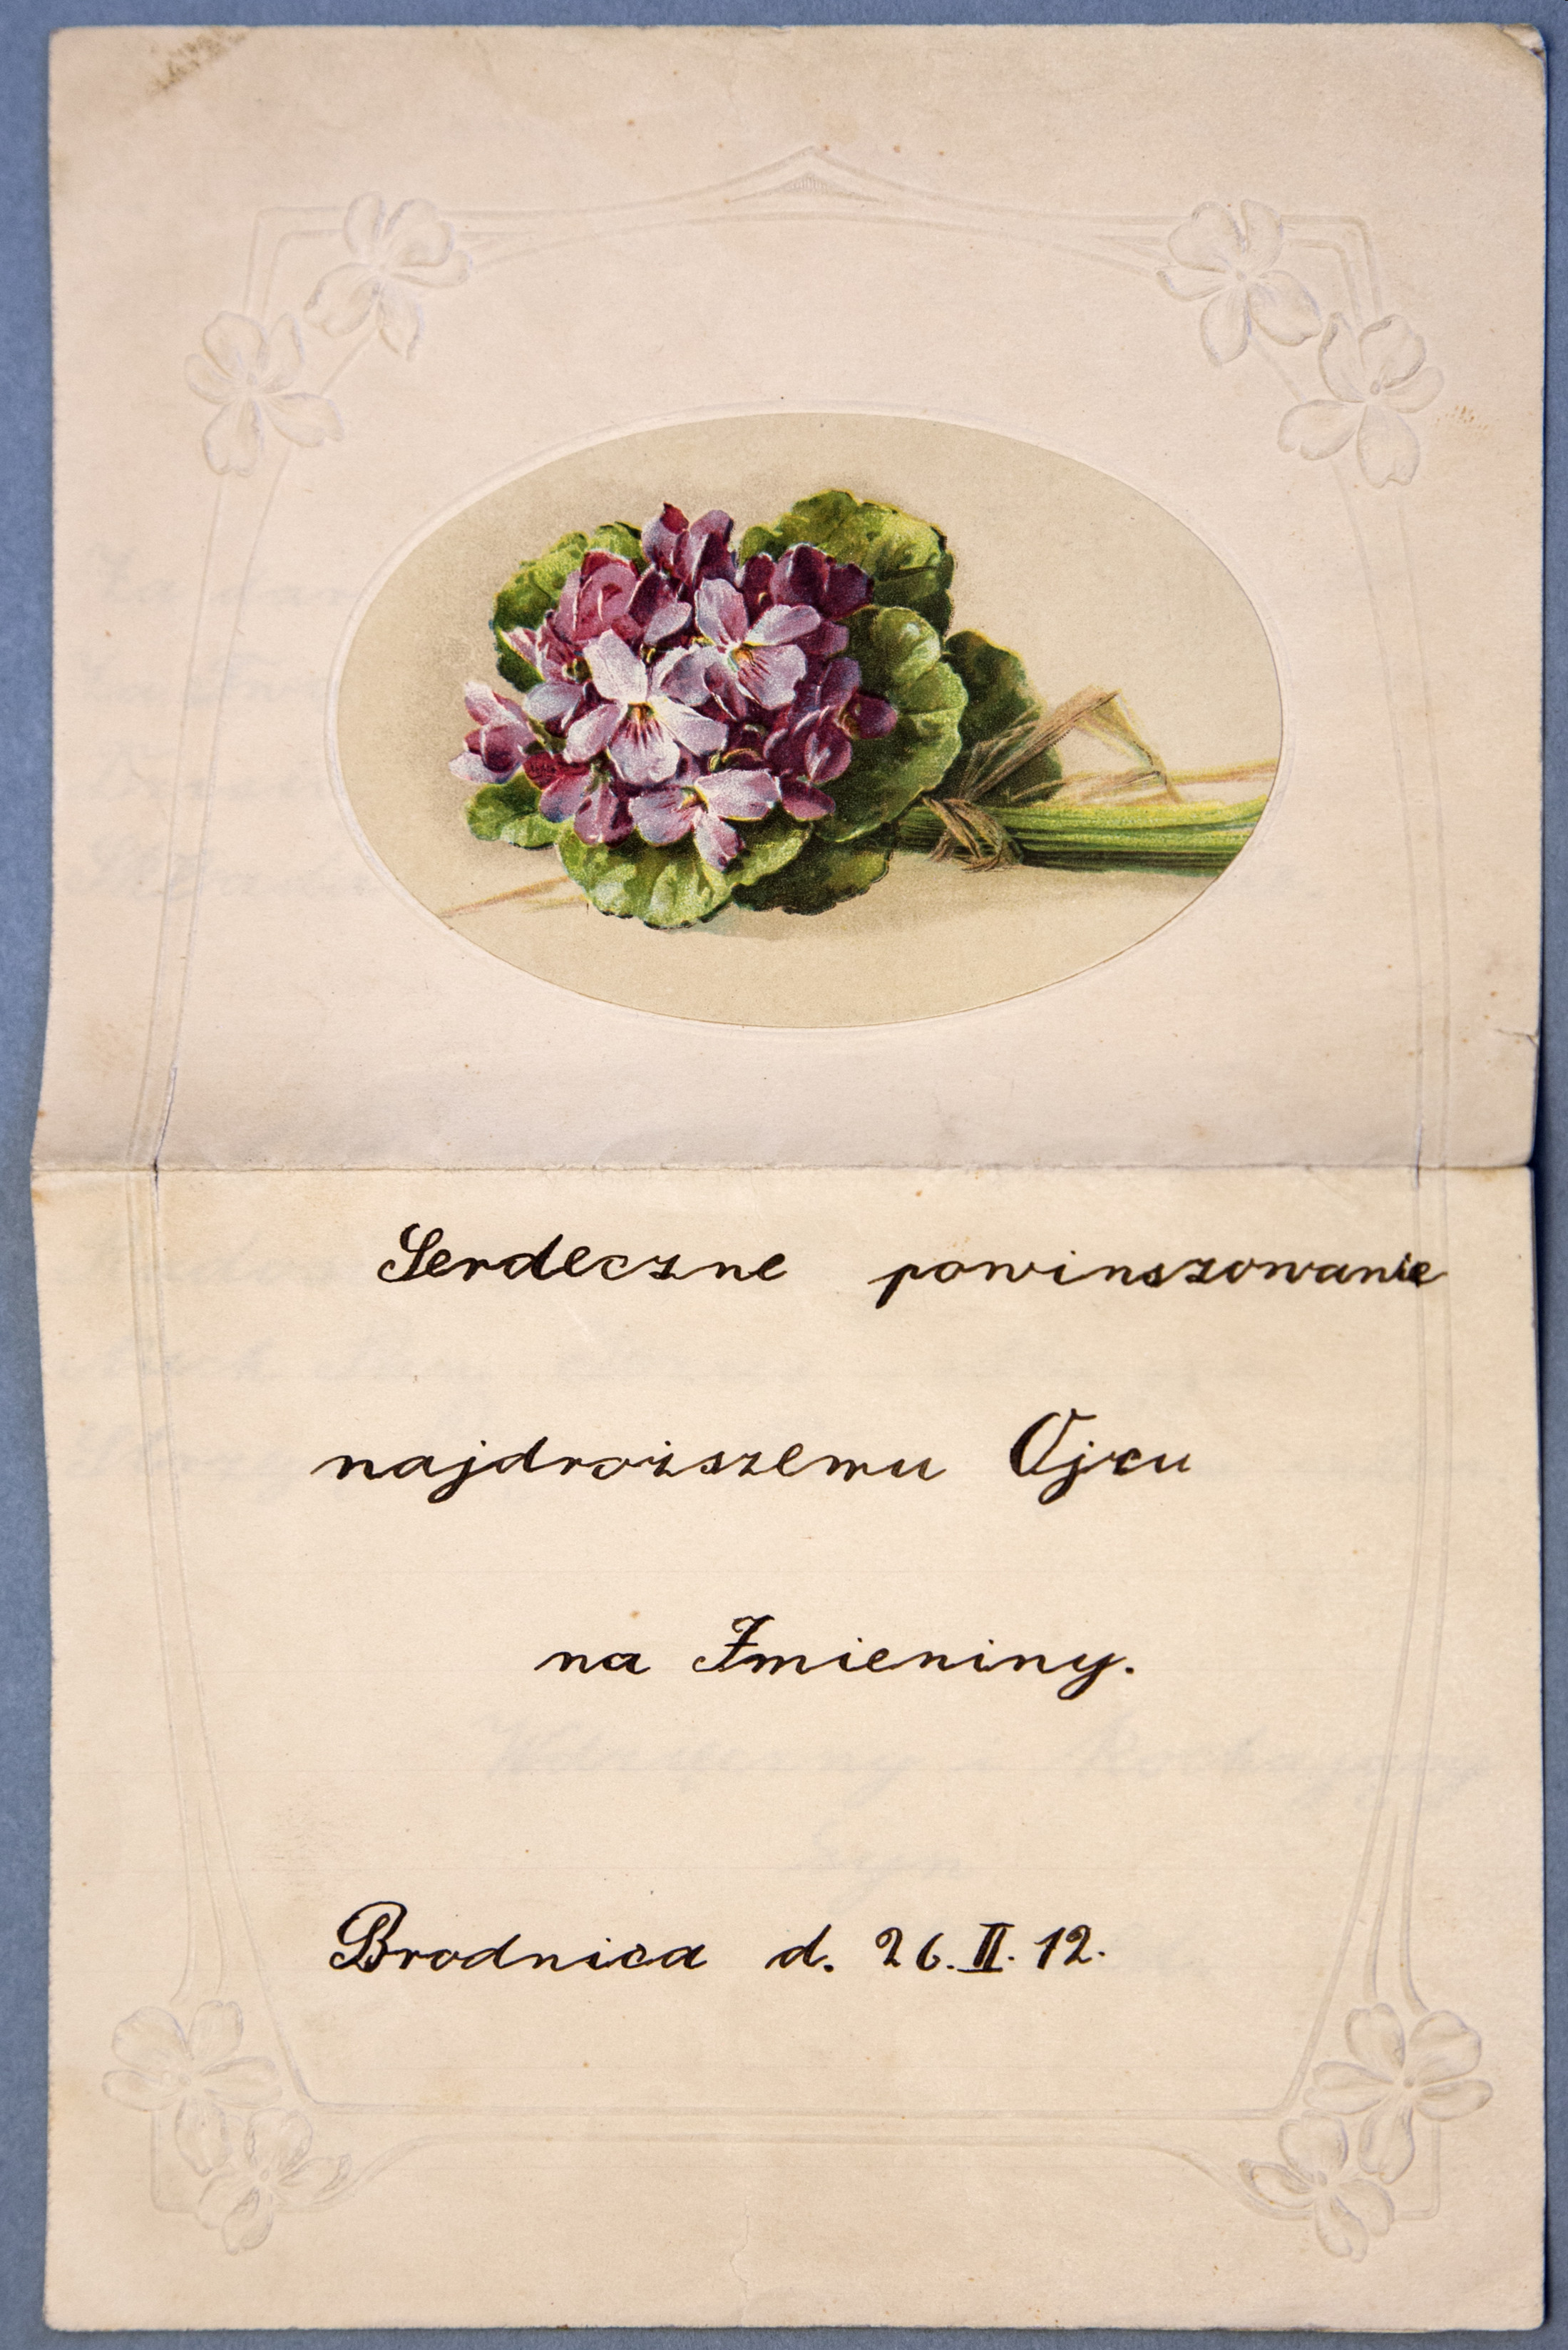 Serdeczne powinszowanie
najdroższemu Ojcu
na Imieniny.
Brodnica d. 26. II. 12.